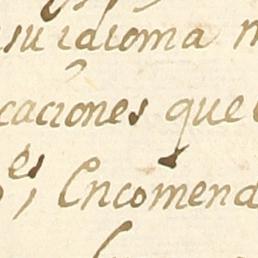 su idioma
caciones que
es, Encomend